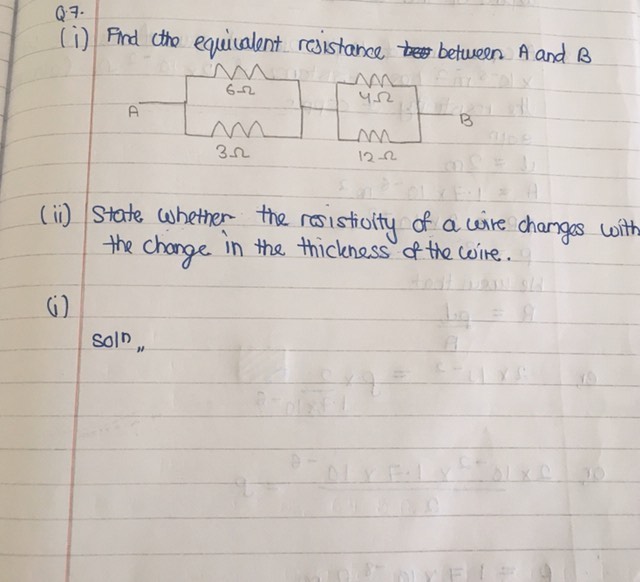 Q7.
(i) Find the equivalent resistance between A and B
6Ω 4Ω
A B
3Ω 12Ω
(ii) State whether the resistivity of a wire changes with
the change in the thickness of the wire.
(i)
Soln,,